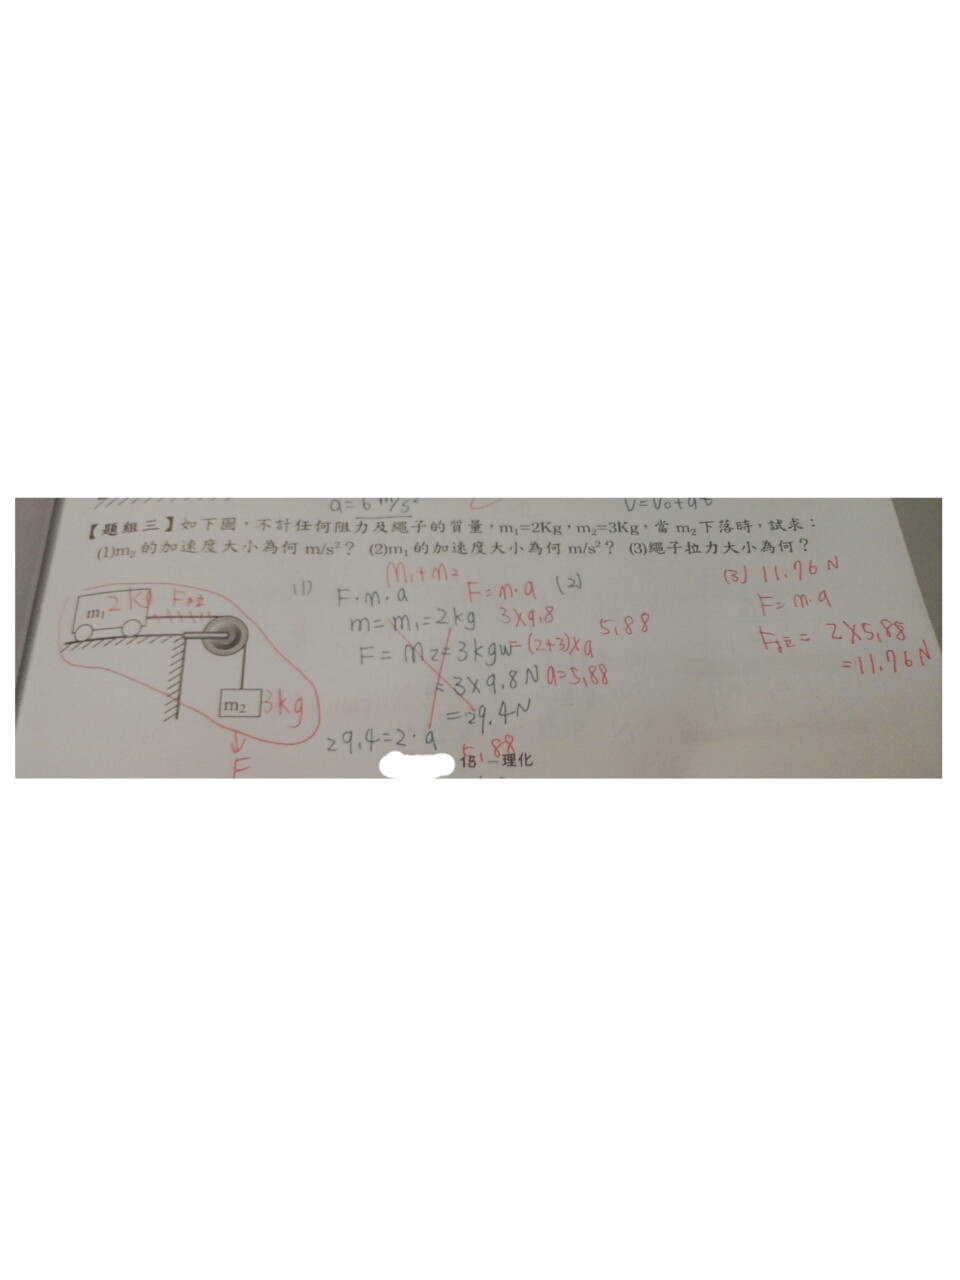 a=6 m/s²
V=V₀+at
【題組三】如下圖,不計任何阻力及繩子的質量,m₁=2Kg,m₂=3Kg,當 m₂下落時,試求:
(1)m₂ 的加速度大小為何 m/s²? (2)m₁ 的加速度大小為何 m/s²? (3)繩子拉力大小為何?
m₁ 2kg F拉
m₂ 3kg
F
(1) F.m.a
m₁+m₂
m=m₁=2kg
F=m₂=3kgw
=3×9.8N
=29.4N
29.4=2.a
F=m.a
3×9.8
=(2+3)×a
a=5.88
5.88
(2)
5.88
(3) 11.76N
F=m.a
F拉=2×5.88
=11.76N
15 —理化